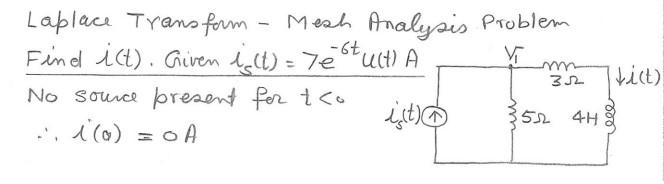 Laplace Transform - Mesh Analysis Problem
Find i(t). Given i_s(t) = 7e^{-6t} u(t) A
No source present for t<0
∴ i(0) = 0A
V₁
3Ω
↓i(t)
i_s(t)
5Ω
4H